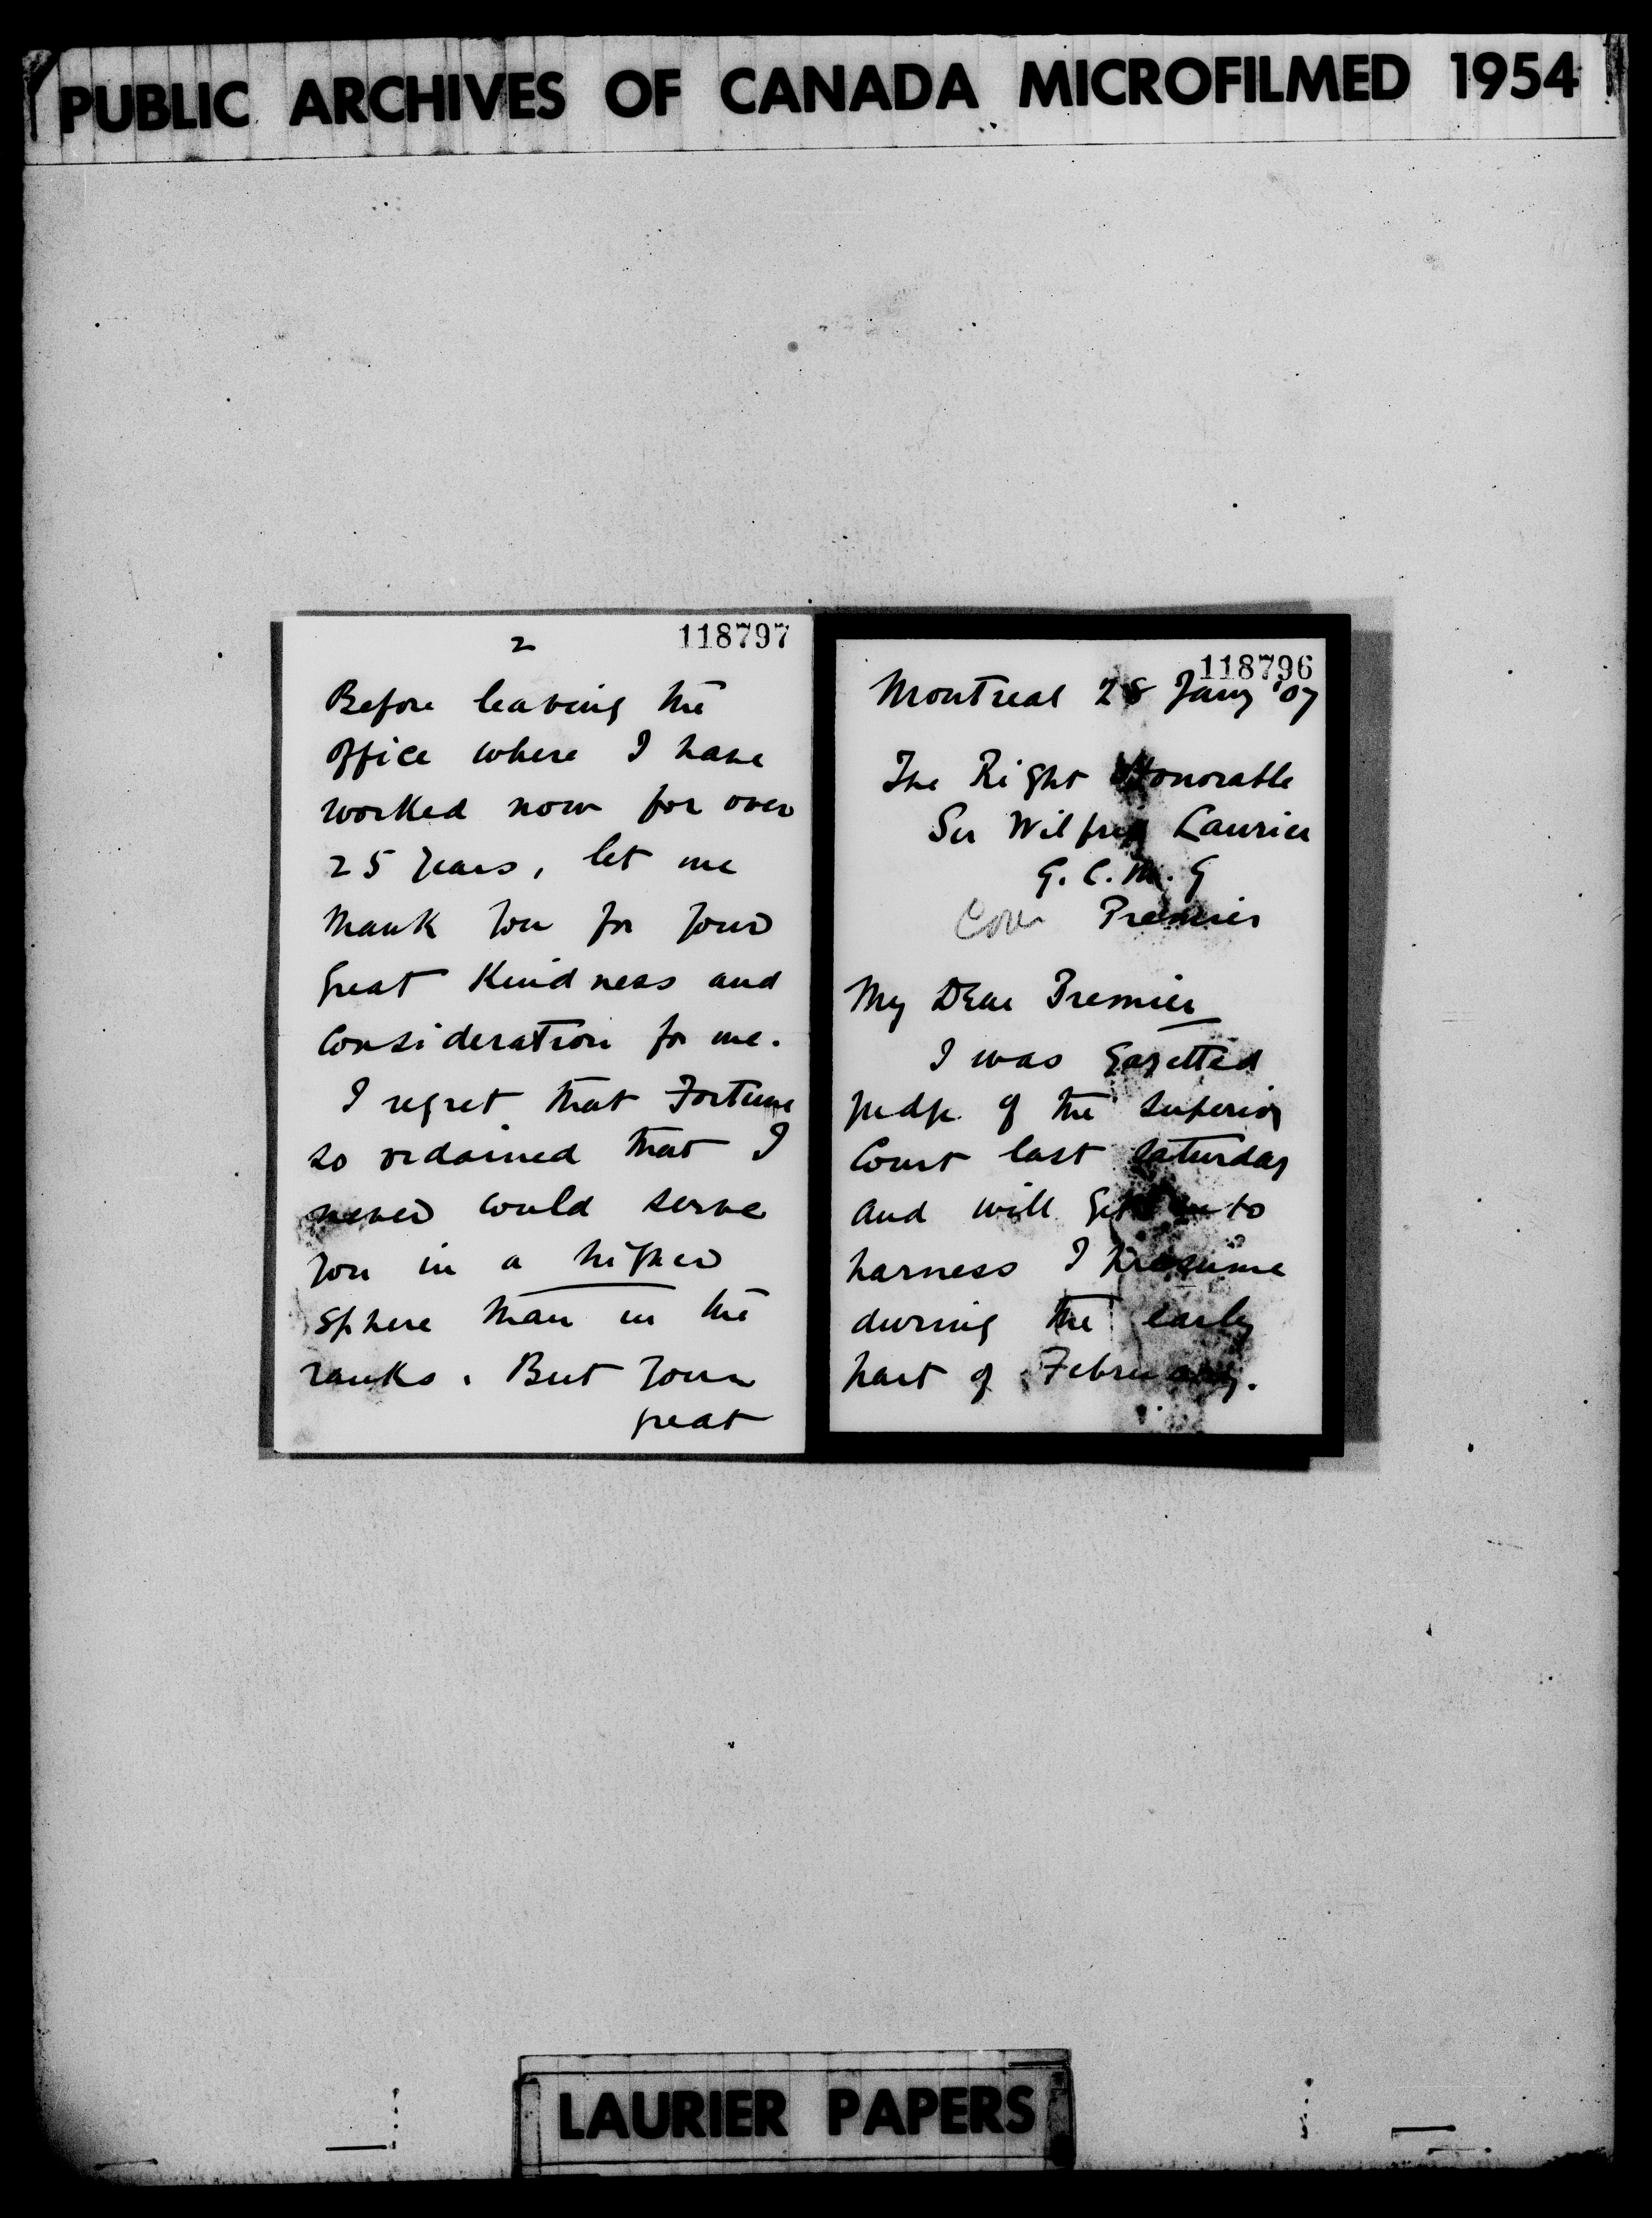 PUBLIC ARCHIVES OF CANADA MICROFILMED 1954
118796
Montreal 28 Jany '07
The Right Honorable
Sir Wilfrid Laurier
G.C.M.G
Premier
My Dear Premier
I was Gazetted
judge of the Superior
Court last Saturday
and will get into
harness I presume
during the early
part of February.
118797
2
Before leaving the
office where I have
worked now for over
25 years, let me
thank you for your
great kindness and
consideration for me.
I regret that Fortune
so ordained that I
never could serve
you in a higher
sphere than in the
ranks. But your
great
LAURIER PAPERS